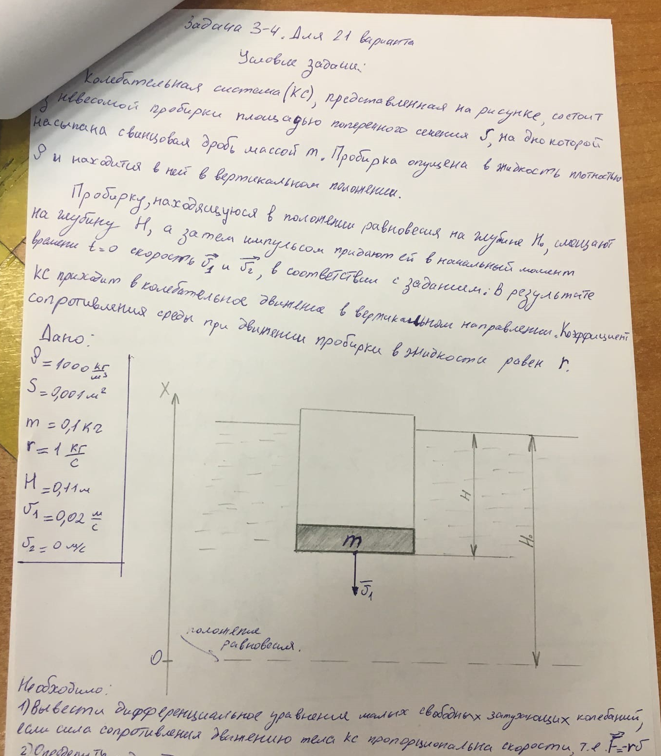 Задача 3-4. Для 21 варианта
Условие задачи:
Колебательная система (КС), представленная на рисунке, состоит
из невесомой пробирки площадью поперечного сечения S, на дно которой
насыпана свинцовая дробь массой m. Пробирка опущена в жидкость плотностью
ρ и находится в ней в вертикальном положении.
Пробирку, находящуюся в положении равновесия на глубине H₀, смещают
на глубину H, а затем импульсом придают ей в начальный момент
времени t=0 скорость v⃗₁ и v⃗₂, в соответствии с заданием. В результате
КС приходит в колебательное движение в вертикальном направлении. Коэффициент
сопротивления среды при движении пробирки в жидкости равен r.
Дано:
ρ = 1000 кг/м³
S = 0,001 м²
m = 0,1 кг
r = 1 кг/с
H = 0,11 м
v₁ = 0,02 м/с
v₂ = 0 м/с
X
H
H₀
m
v̅₁
положение
равновесия.
0
Необходимо:
1) Вывести дифференциальное уравнение малых свободных затухающих колебаний,
если сила сопротивления движению тела КС пропорциональна скорости, т.е. F⃗=-rv⃗
2) Определить